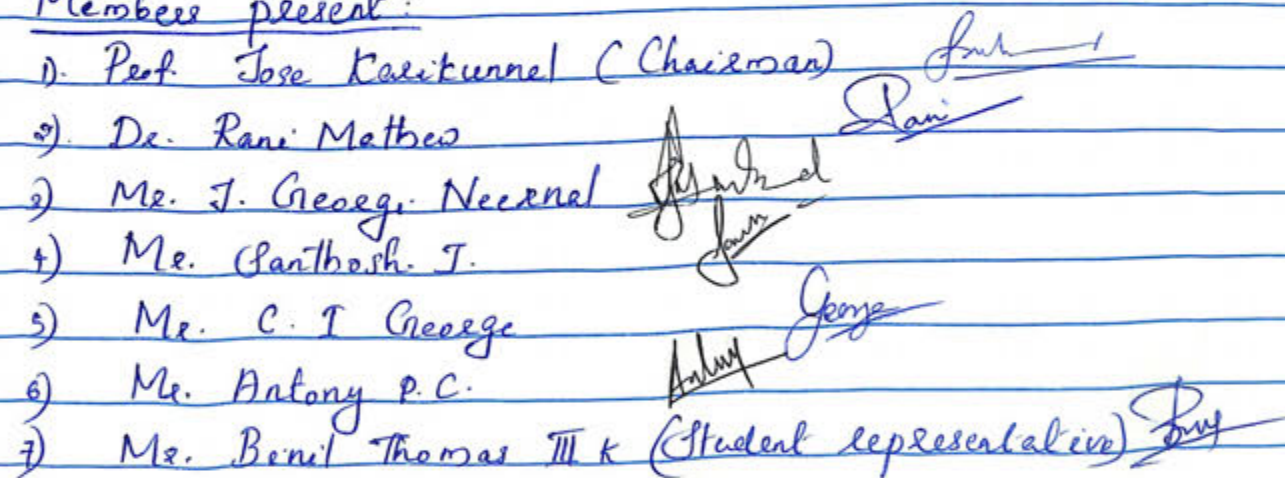 Members present:
1). Prof. Jose Karikunnel (Chairman)
2). Dr. Rani Mathew Rani
3) Mr. J. George Neernal
4) Mr. Santhosh. J.
5) Mr. C. I George George
6) Mr. Antony P. C. Antony
7) Mr. Benil Thomas III K (Student representative)